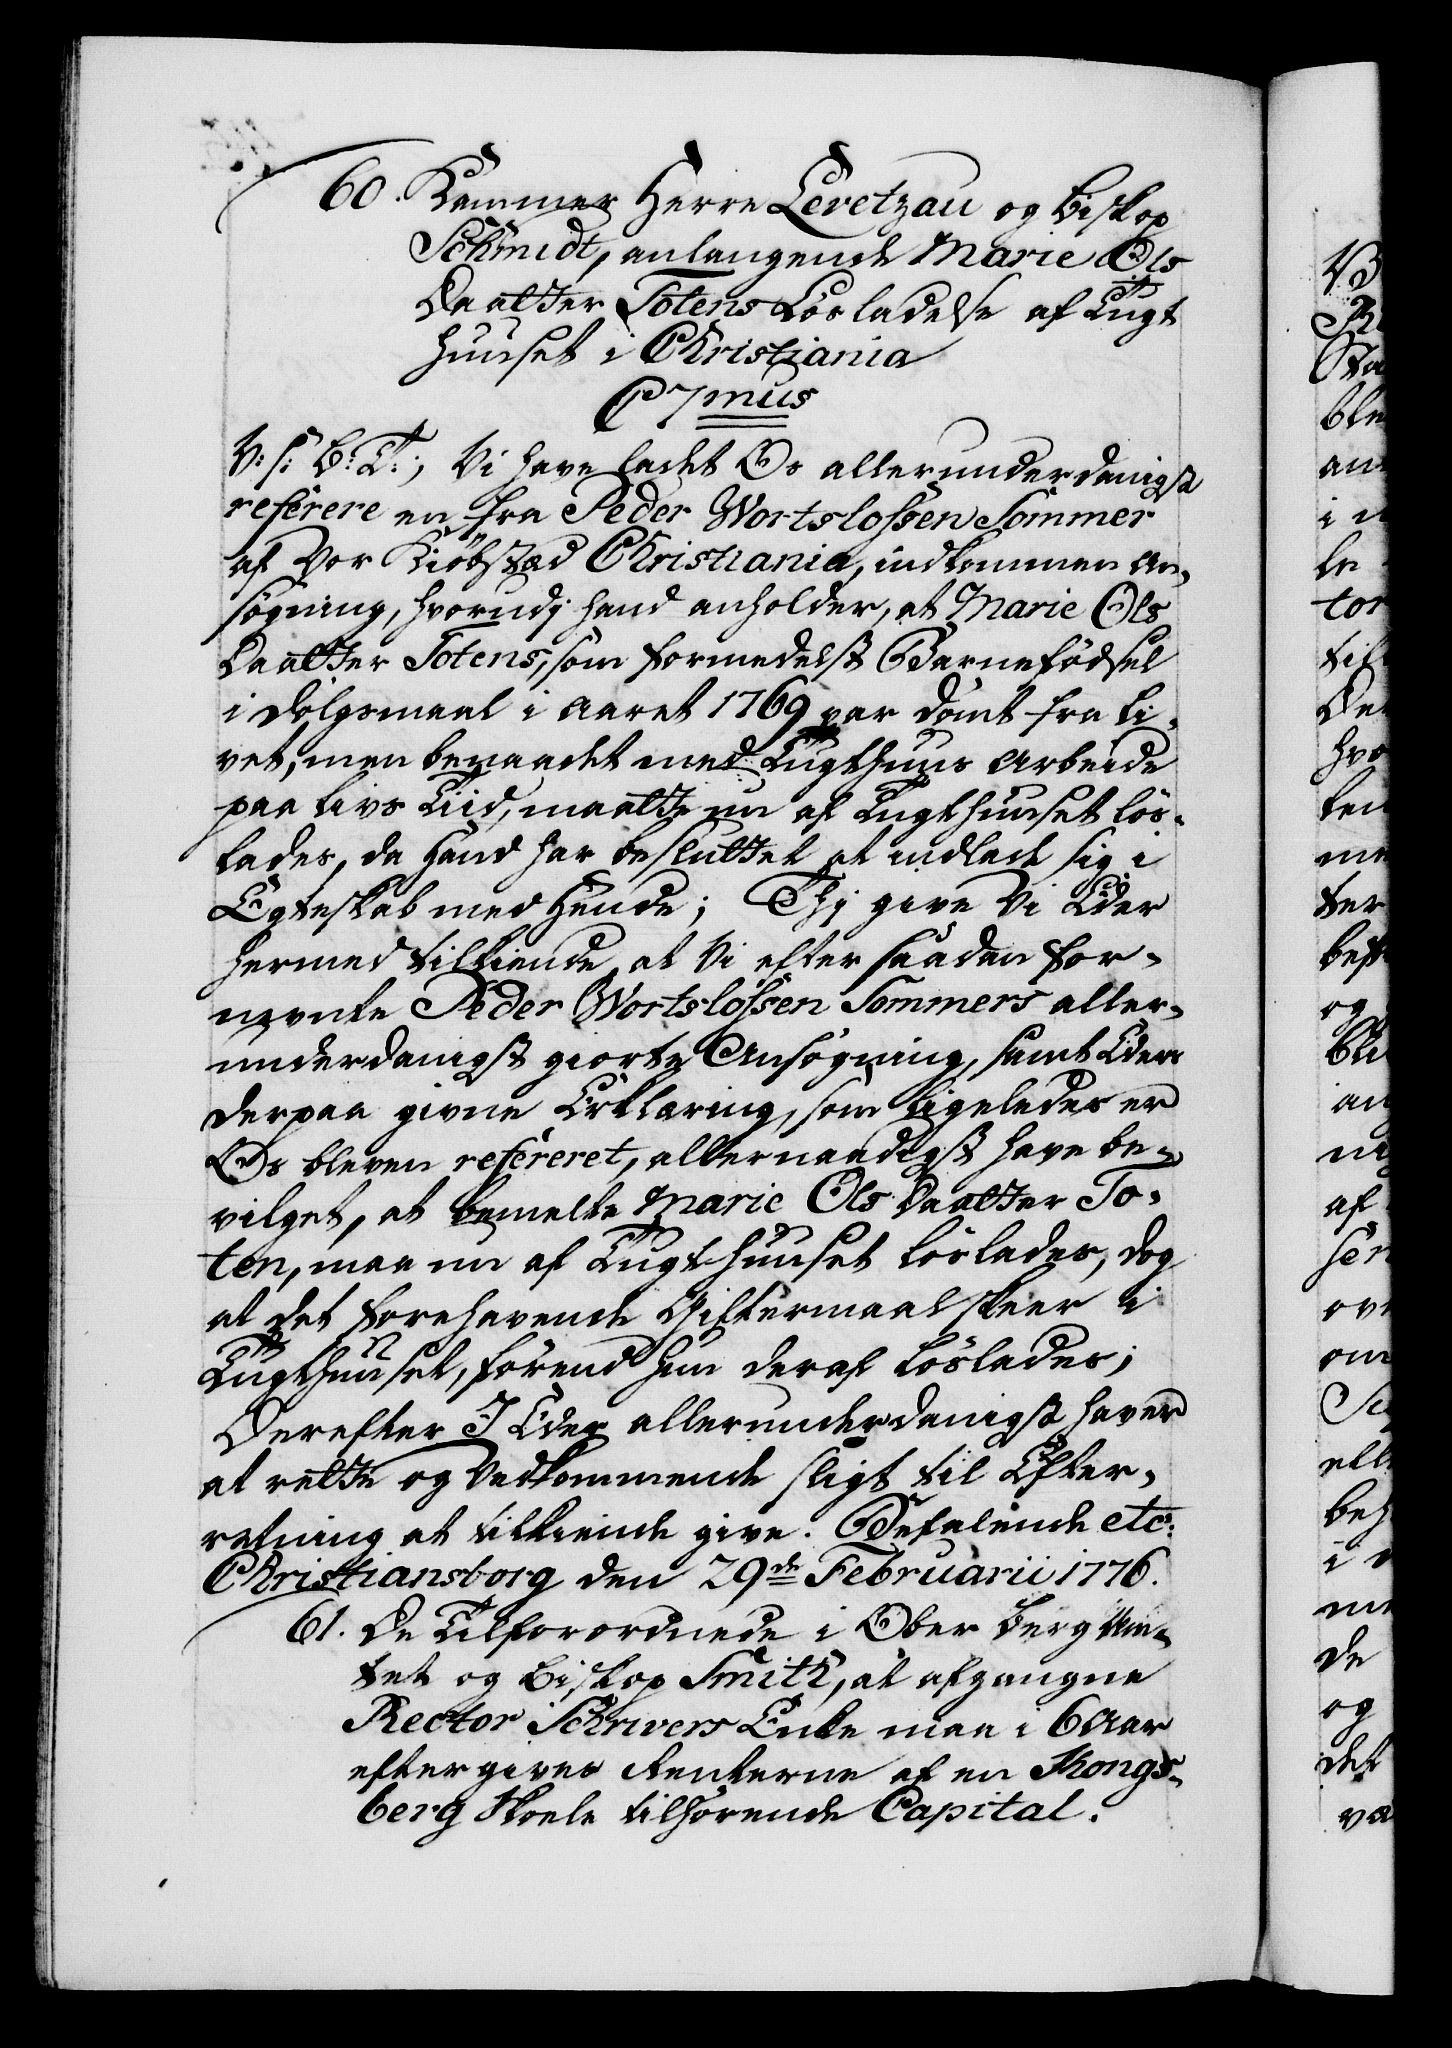 60. Kammer Herre Levetzau og Biskop
Schmidt, anlangende Marie Ols
Daatter Totens Løsladelse af Tugt
Huuset i Christiania
C 7mus
V: S: B: T:, Vi have ladet Os allerunderdanigst
referere en fra Peder Wortslossen Sommer
af Vor Kiøbstæd Christiania, indkommen An-
søgning, hvorudj hand anholder, at Marie Ols
Daatter Totens, som formedelst Barnefødsel
i Dølgsmaal i Aaret 1769 var dømt fra Li-
vet, men benaadet med Tugthuus Arbeide
paa Livs Tiid, maatte nu af Tugthuuset løs-
lades, da Hand har besluttet at indlade sig i
Egteskab med Hende; Thj give Vi Eder
hermed tilkiende, at Vi efter saadan for-
nevnte Peder Wortslossen Sommers aller-
underdanigst giorte Ansøgning, samt Eders
derpaa givne Erklæring, som ligeledes er
Os bleven refereret, allernaadigst have be-
vilget, at bemelte Marie Ols Daatter To-
ten, maa nu af Tugthuuset løslades, dog
at det forehavende Giftermaal skeer i
Tugthuuset, førend hun deraf løslades;
Derefter I Eder allerunderdanigst haver
at rette og Vedkommende sligt til Efter-
retning at tilkiende give. Befalende etc:
Christiansborg den 29de Februarii 1776.
61. De Tilforordnede i Ober Berg Am-
tet og Biskop Smith, at afgangne
Rector Schrivers Enke maa i 6 Aar
eftergives Renterne af en Kongs-
berg Skoele tilhørende Capital.